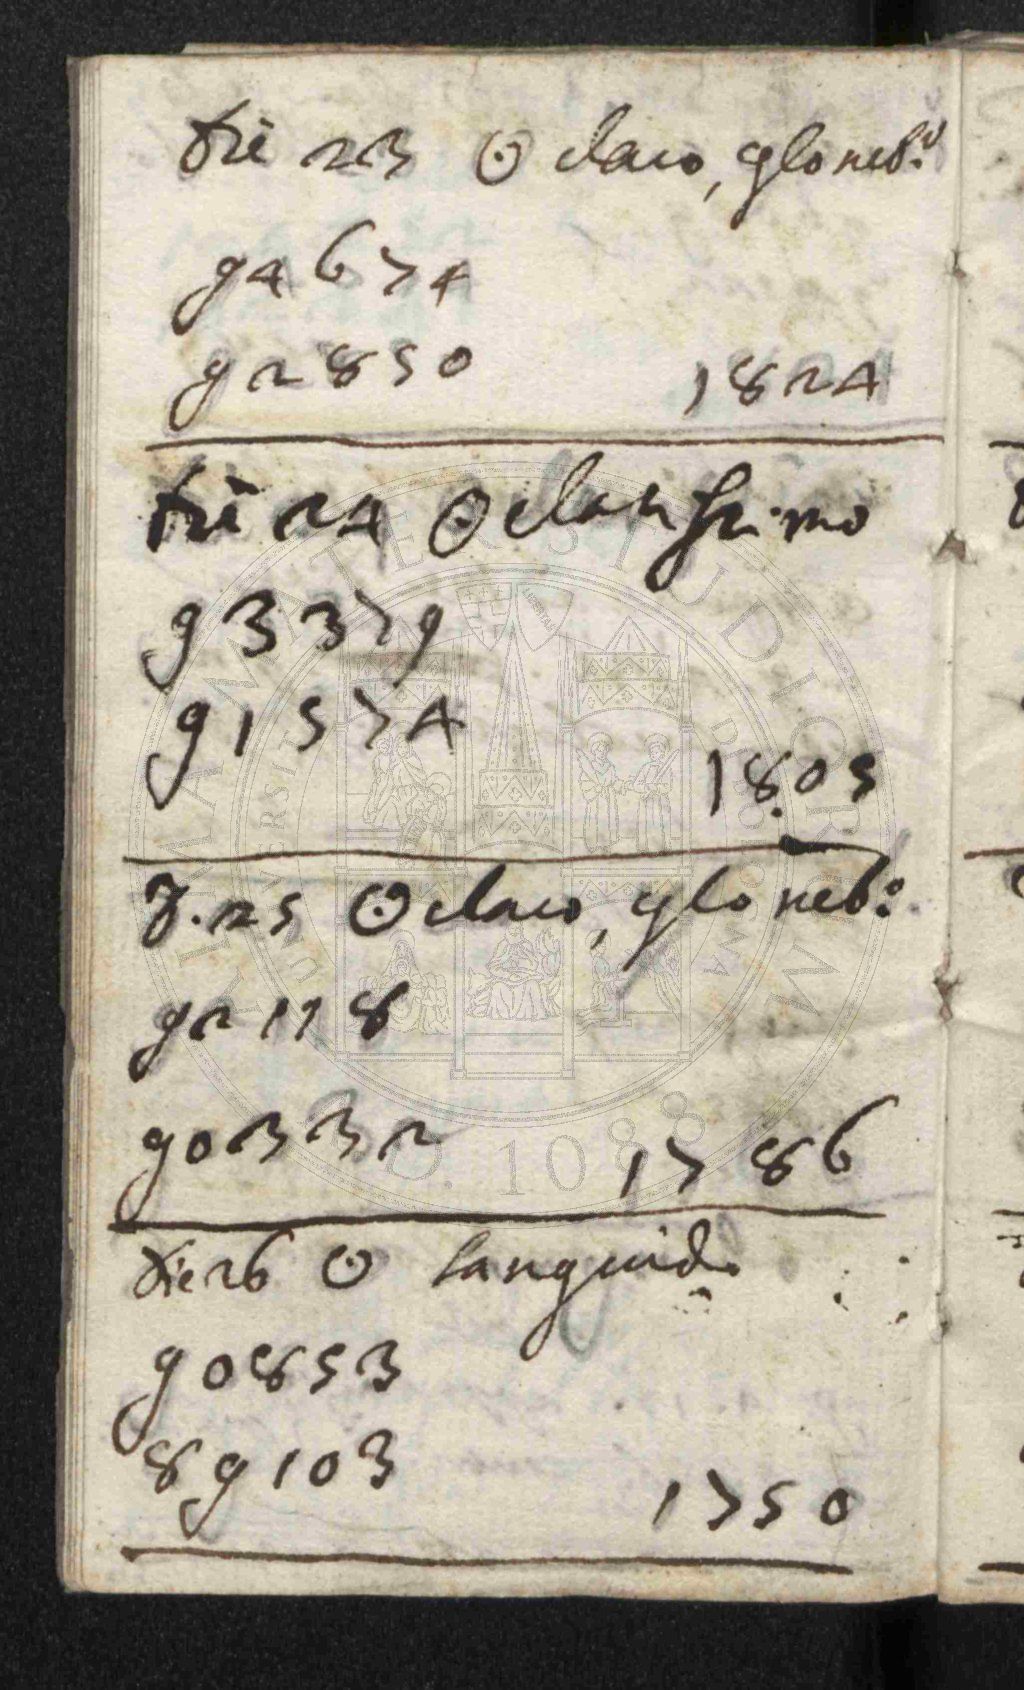 Die 23 ☉ claro, cylo neb:o
94674
92850 1824
Die 24 ☉ clarissimo
93379
91574
1805
D. 25 ☉ claro, cylo neb:o
92118
90332 1786
Die 26 ☉ languido
90853
89103 1750
ALMA MATER STUDIORUM
A.D. 1088